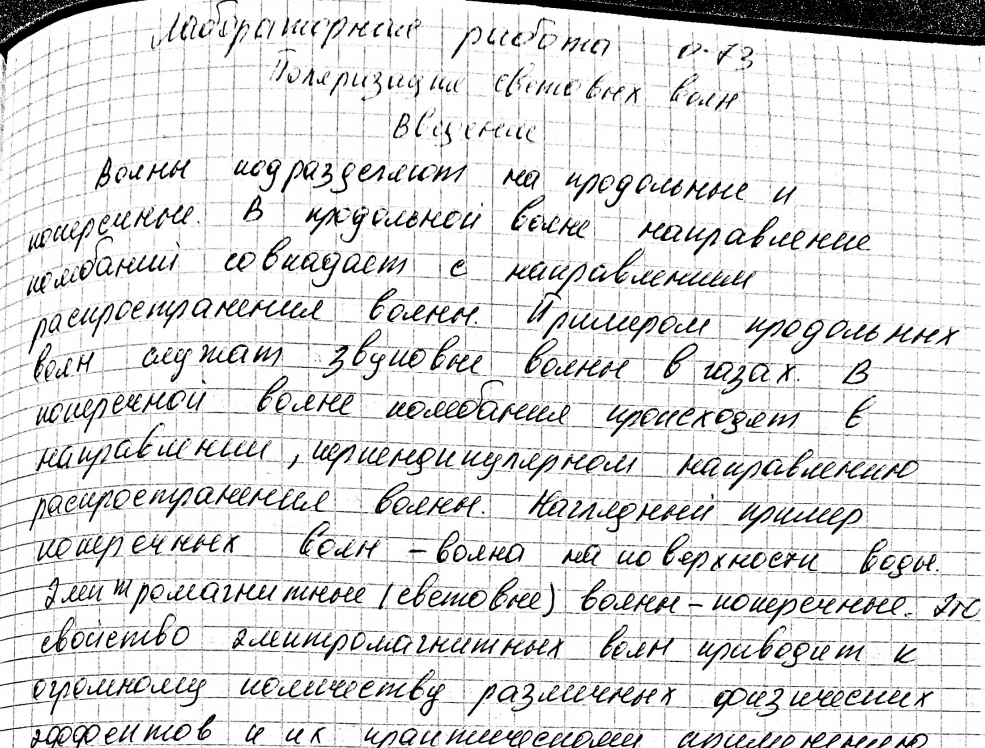 Лабораторная работа О-73
Поляризация световых волн
Введение
Волны подразделяют на продольные и
поперечные. В продольной волне направление
колебаний совпадает с направлением
распространения волны. Примером продольных
волн служат звуковые волны в газах. В
поперечной волне колебания происходят в
направлении, перпендикулярном направлению
распространения волны. Наглядный пример
поперечных волн – волна на поверхности воды.
Электромагнитные (световые) волны – поперечные. Это
свойство электромагнитных волн приводит к
огромному количеству различных физических
эффектов и их практическому применению